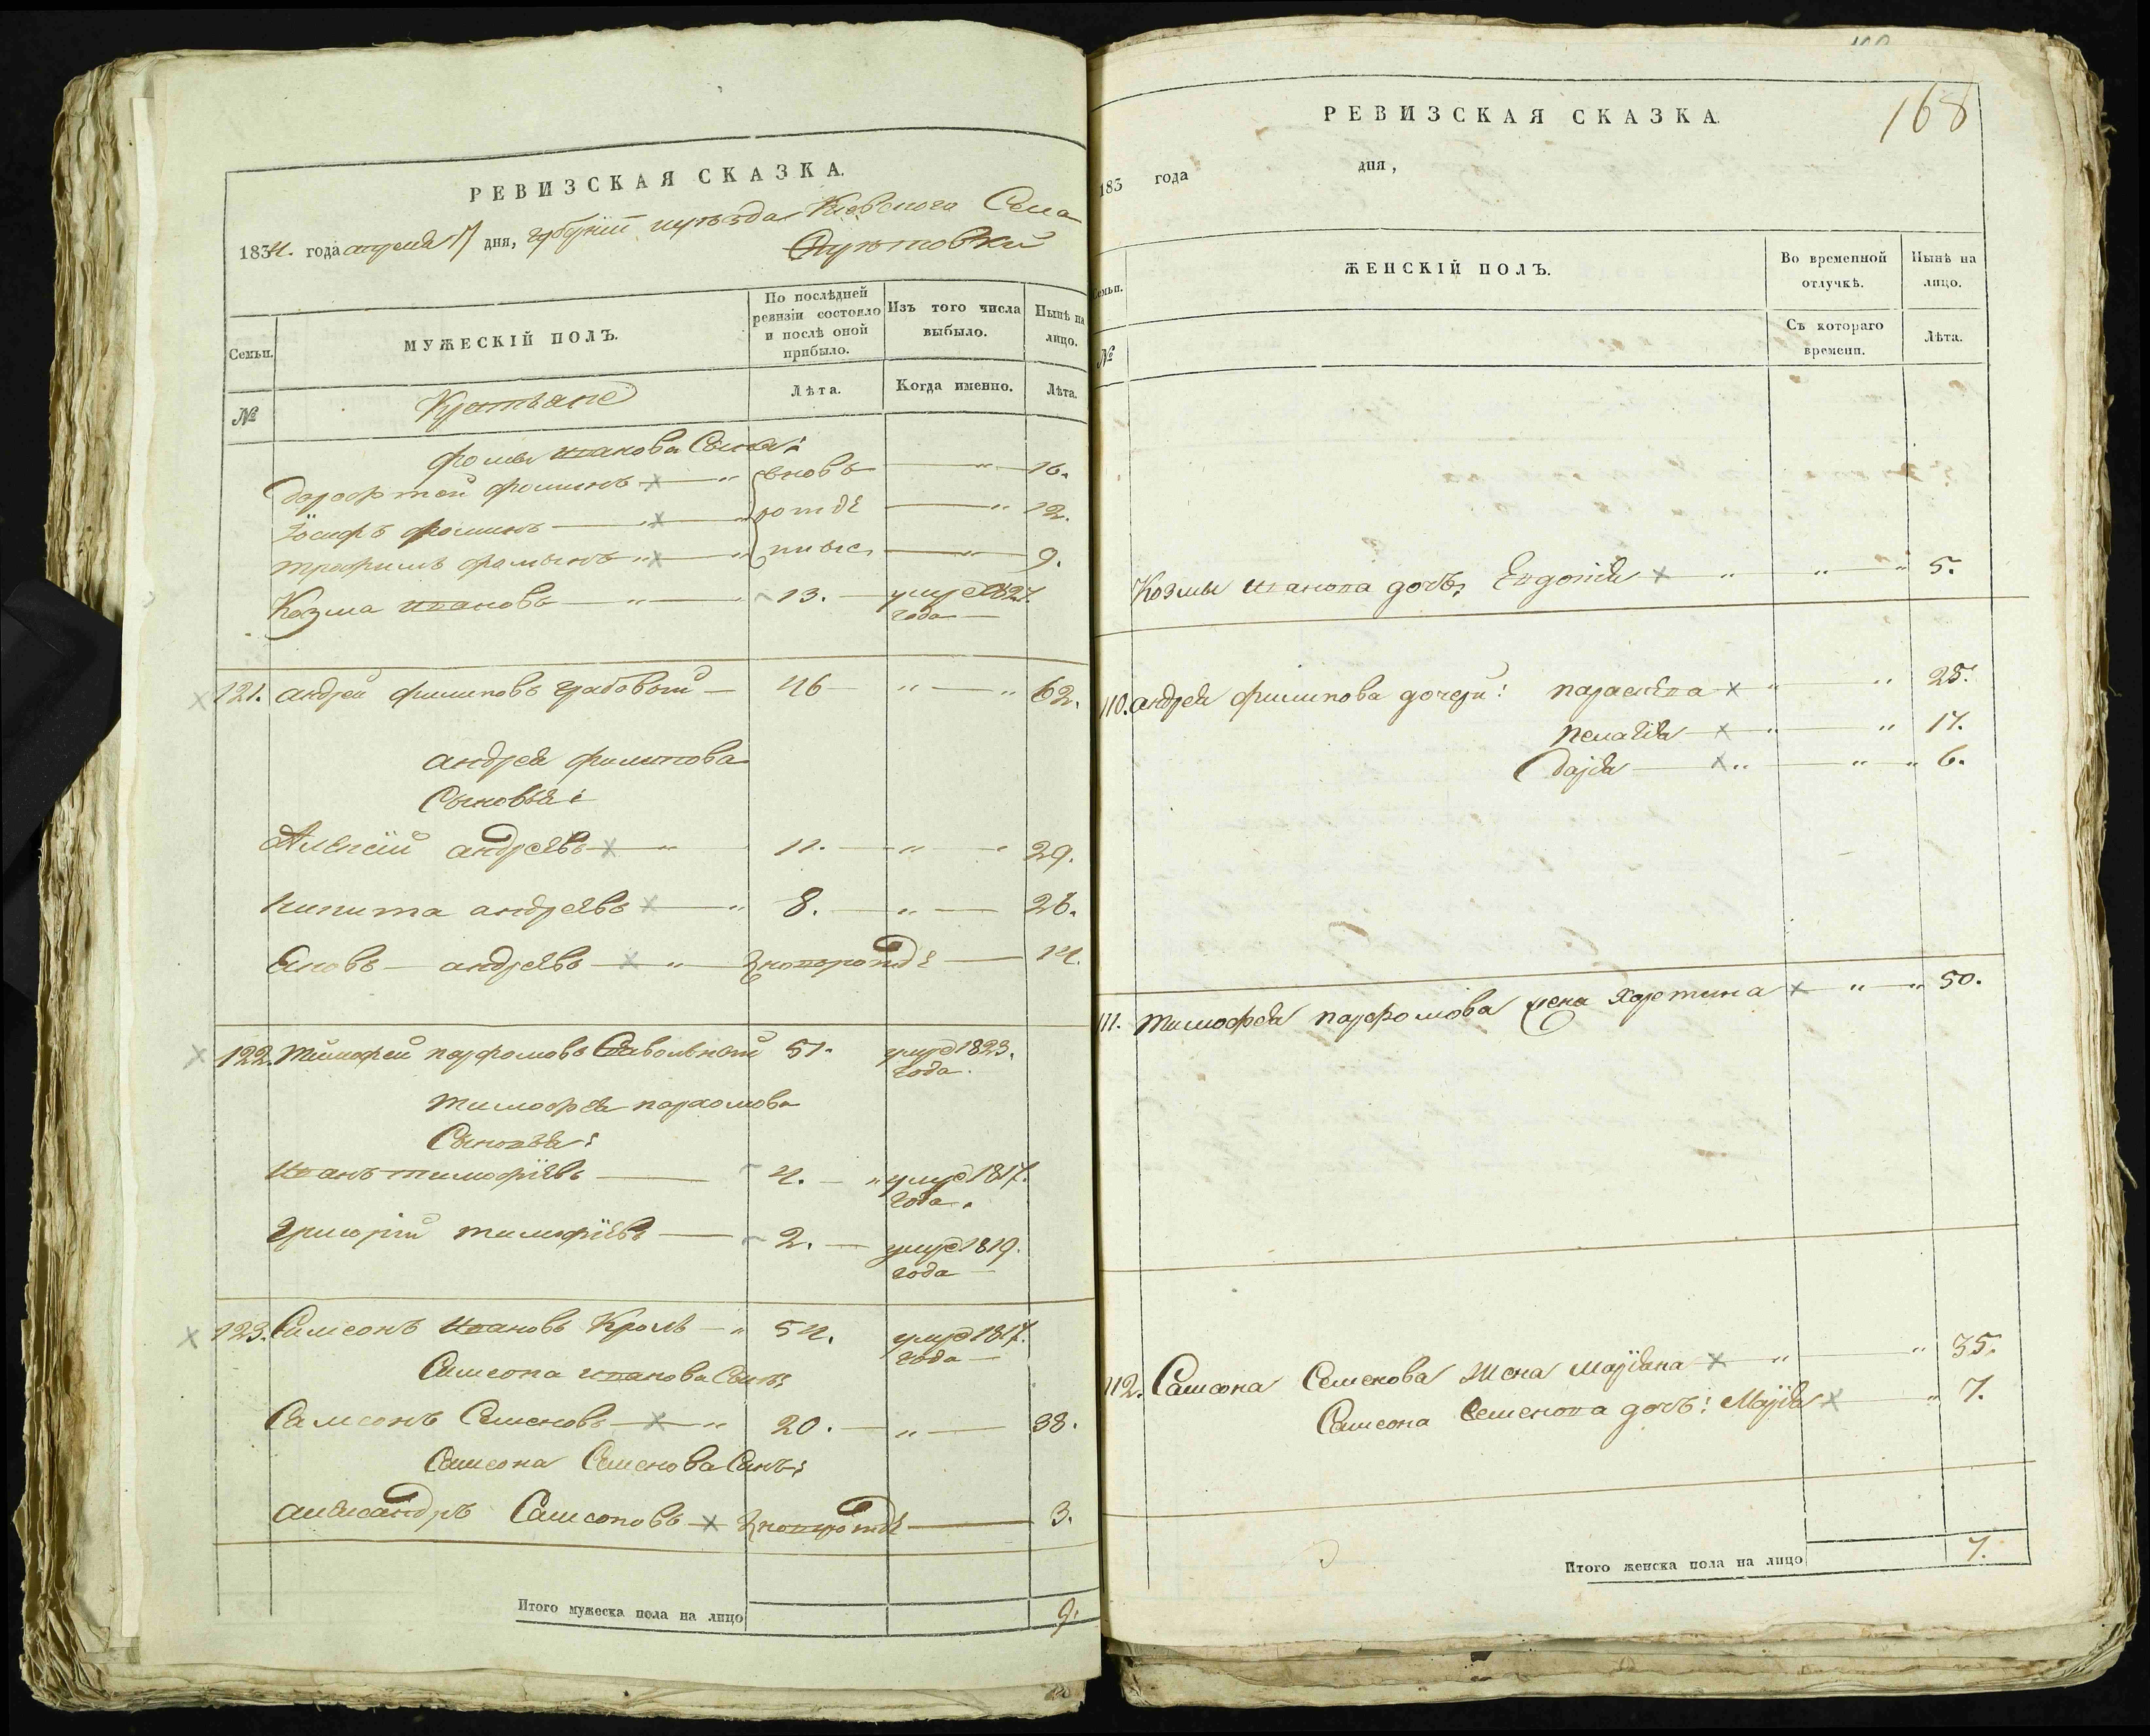 РЕВИЗСКАЯ СКАЗКА.
1834. года апреля 17 дня, губернїи и уезда Кіевского Села
Крестьяне
Семьи.
МУЖЕСКІЙ ПОЛЪ.
По послѣдней ревизіи состояло и послѣ оной прибыло.
Изъ того числа выбыло.
Нынѣ на лицо.
№
Лѣта.
Когда именно.
Лѣта.
Фомы иванова Сыновя:
Дорофтей фоминъ x вновь 16.
Їосифъ фоминъ x рожде 12.
трофимъ фоминъ x нные 9.
Козма ивановъ 13. умре 1827. года
121. андрей филиповъ грабовый 46 62.
андрея филипова
Сыновья:
Алексїй андреевъ x 11. 29.
никита андреевъ x 8. 26.
Яковъ андреевъ x новорожде 14.
122. тимофей парфомовъ 51. умре 1823. года.
тимофея пархомова
Сыновья:
иванъ тимофїевъ 4. умре 1817. года.
григорїй тимофїевъ 2. умре 1819. года
123. Самсонъ ивановъ Кроль 54. умре 1817. года
Самсона иванова Сынъ:
Самсонъ Семеновъ x 20. 38.
Самсона Семенова Сынъ:
александръ Самсоновъ x новорожде 3.
Итого мужеска пола на лицо 9.
168
РЕВИЗСКАЯ СКАЗКА.
183 года дня,
Семьи.
ЖЕНСКІЙ ПОЛЪ.
Во временной отлучкѣ.
Нынѣ на лицо.
№
Съ котораго времени.
Лѣта.
Козмы иванова дочь, Евдокїя x 5.
110. андрея филипова дочери: параскева x 25.
пелагїя x 17.
Дарїя x 6.
111. тимофея парфомова жена Харитина x 50.
112. Самсона Семенова жена Марїяна x 35.
Самсона Семенова дочь: Марїя x 7.
Итого женска пола на лицо 7.